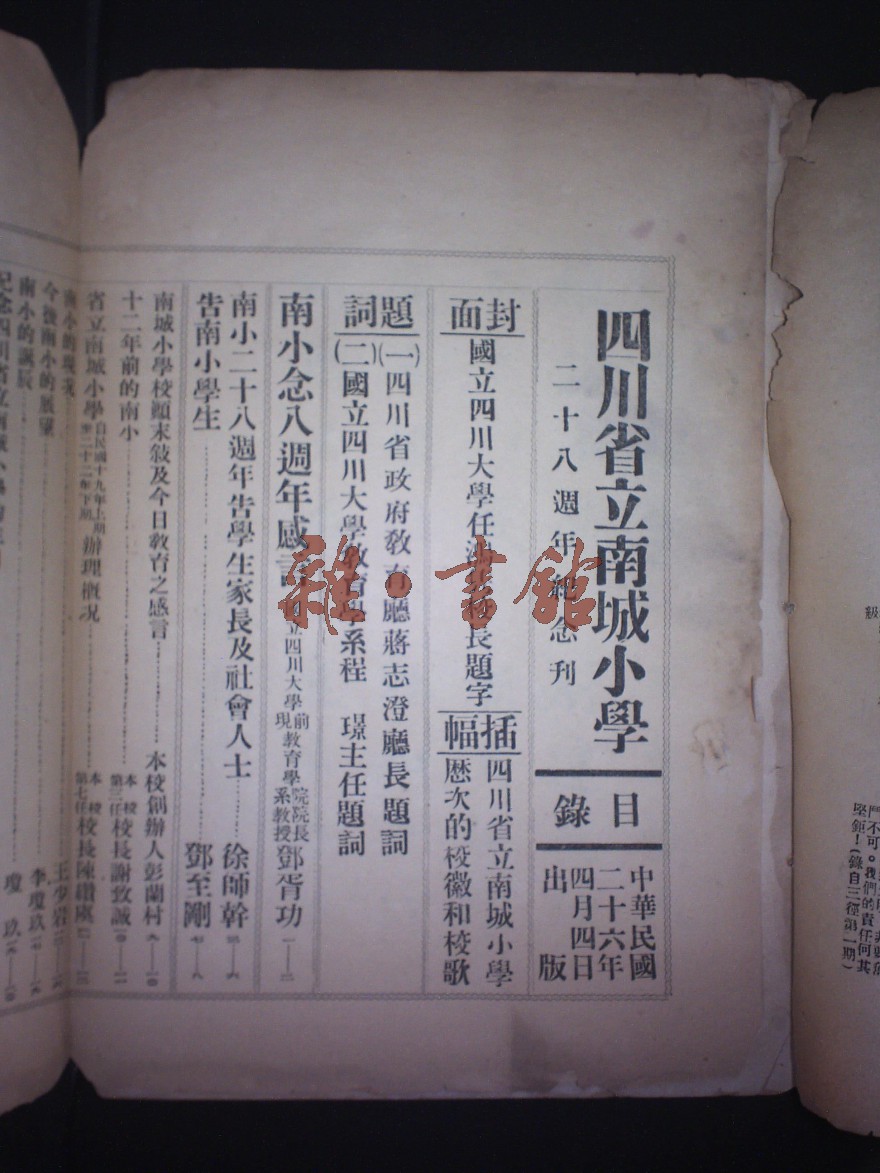 四川省立南城小學
二十八週年紀念刊
目錄
中華民國
二十六年
四月四日
出版
封面
國立四川大學任 長題字
插幅
四川省立南城小學
歷次的校徽和校歌
題詞
(一)四川省政府教育廳蔣志澄廳長題詞
(二)國立四川大學教育學系程 璟主任題詞
南小念八週年感言
國立四川大學前教育學院院長
現教育學系教授
鄧胥功 一—二
南小二十八週年告學生家長及社會人士 徐師幹
告南小學生 鄧至剛 七—八
南城小學校顛末敍及今日教育之感言 本校創辦人彭蘭村 九—一0
十二年前的南小 本校第三任校長謝致誠 一0—一一
省立南城小學自民國十九年上期至二十二年下期辦理概况 本校第七任校長陳
南小的現况 王少岩
今後南小的展望 李瓊玖
南小的誕辰 瓊玖
紀念四川省立南城小學
級
門不可。我們的責任何其
堅鉅!(錄自三徑第一期)
雜·書館